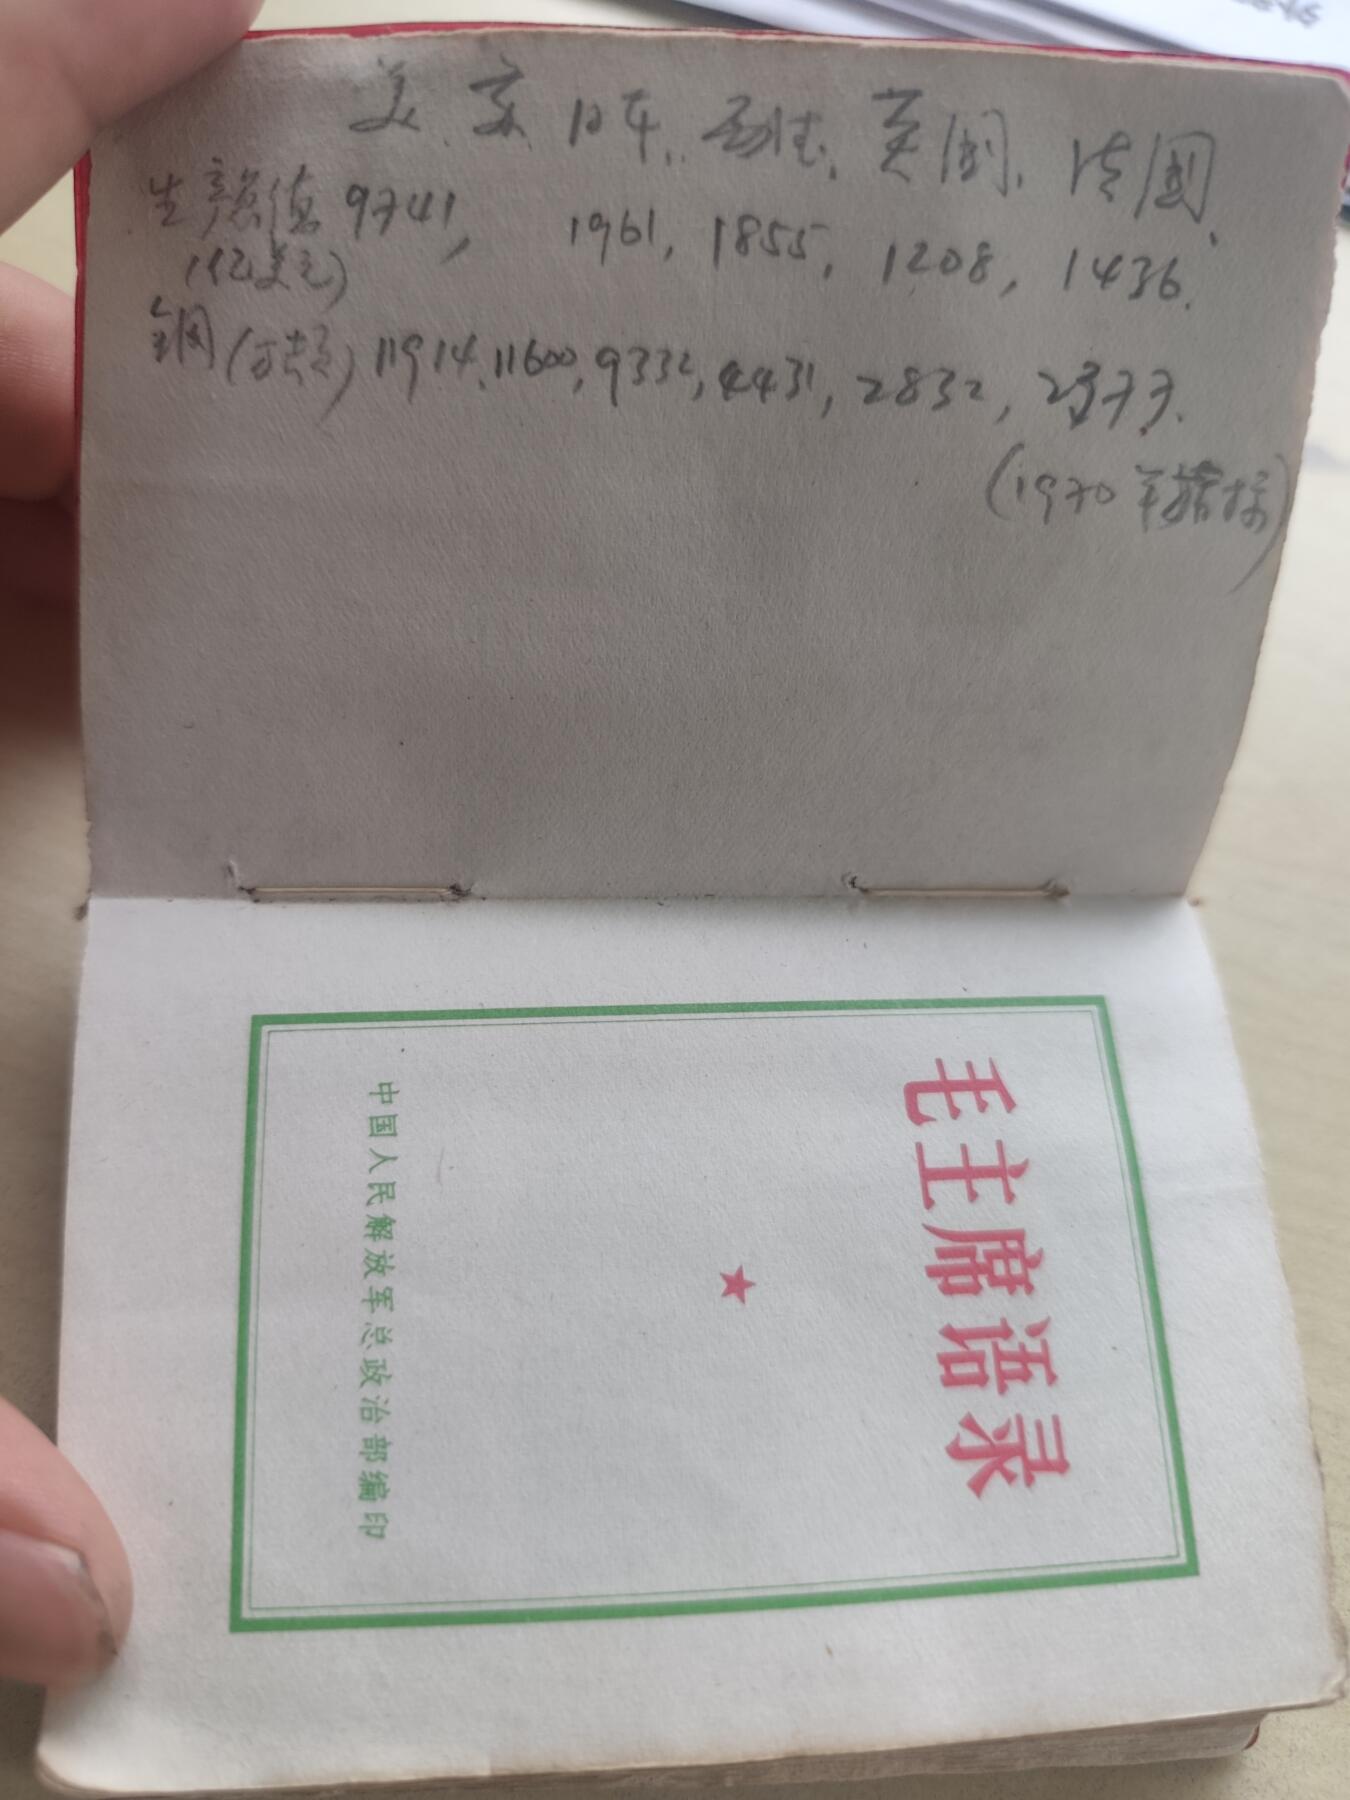 美、苏、日本、西德、英国、法国、
生产总值 9741, 1961, 1855, 1208, 1436.
(亿美元)
钢(万吨) 11914, 11600, 9332, 4431, 2832, 2377.
(1970年指标)
毛主席语录
中国人民解放军总政治部编印